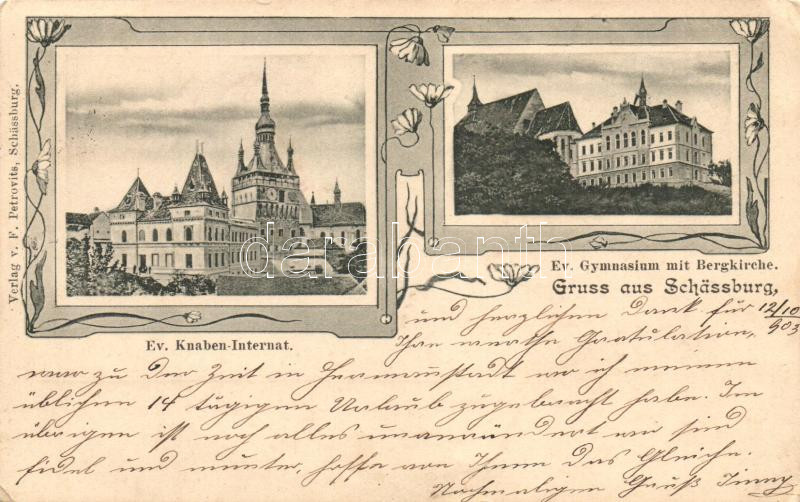 Verlag v. F. Petrovits, Schässburg.
Ev. Knaben-Internat.
Ev. Gymnasium mit Bergkirche.
Gruss aus Schässburg,
darabanth.com
12/10
903
und herzlichen Dank für
Ihre werthe Gratulation,
war zu der Zeit in Hermannstadt wo ich meinen
üblichen 14 tägigen Urlaub zugebracht habe. Im
übrigen ist noch alles unverändert wir sind
fidel und munter, hoffe von Ihnen das Gleiche.
Nochmaligen Gruß